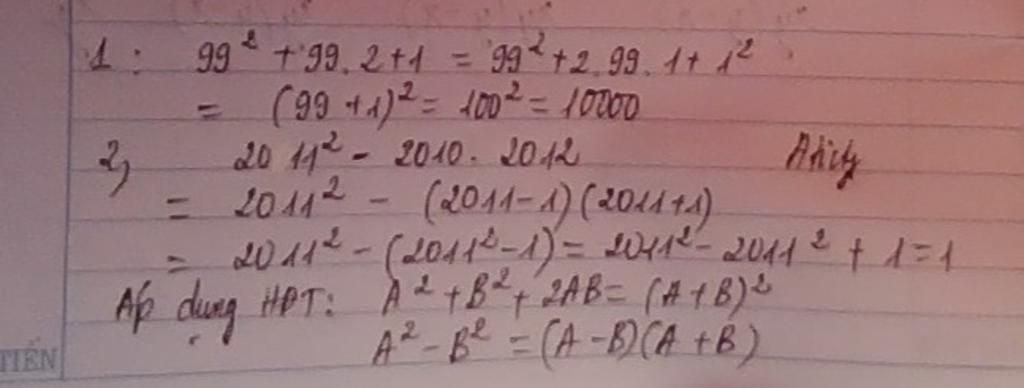 1: 99² + 99.2+1 = 99²+2.99.1+1²
= (99+1)² = 100² = 10000
2, 2011² - 2010.2012
= 2011² - (2011-1)(2011+1)
= 2011² - (2011²-1) = 2011² - 2011² + 1 = 1
Áp dụng HĐT: A² + B² + 2AB = (A+B)²
A² - B² = (A-B)(A+B)
TIẾN